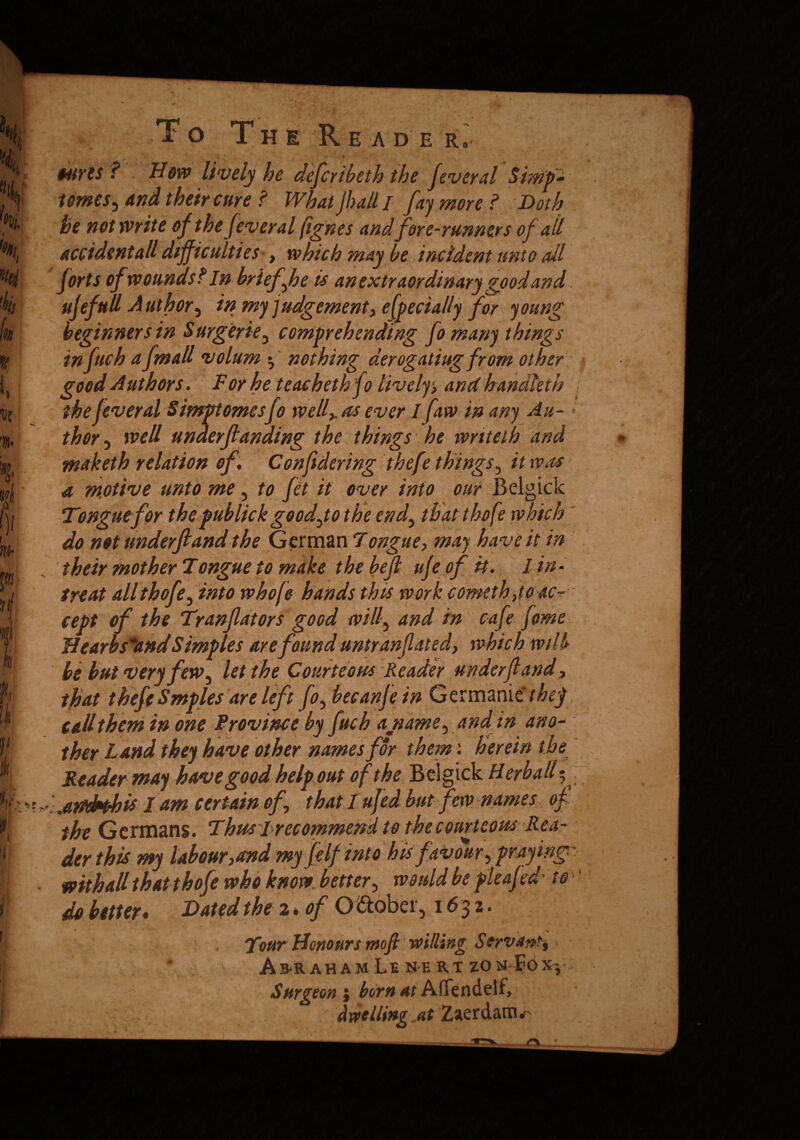 To The Reader.
tures ? How lively he deſcribeth the ſeveral Simp-
tomes, and their cure ? What ſhall I ſay more ? Doth
he not write of the ſeveral ſignes and fore-runners of all
accidentall difficulties , which may be incident unto all
ſorts of wounds ? In brief, he is an extraordinary good and
uſefull Author, in my judgement, eſpecially for young
beginners in Surgerie, comprehending ſo many things
in ſuch a ſmall volum ; nothing derogatiug from other
good Authors. For he teacheth ſo lively, and handleth
the ſeveral Simptomes ſo well, as ever I ſaw in any Au-
thor, well underſtanding the things he writeth and
maketh relation of. Conſidering theſe things, it was
a motive unto me, to ſet it over into our Belgick
Tongue for the publick good, to the end, that thoſe which
do not underſtand the German Tongue, may have it in
their mother Tongue to make the beſt uſe of it. I in-
treat all thoſe, into whoſe hands this work cometh, to ac-
cept of the Tranſlators good will, and in caſe ſome
Hearbs and Simples are found untranſlated, which will
be but very few, let the Courteous Reader underſtand,
that theſe Smples are left ſo, becanſe in Germanie they
call them in one Province by ſuch a name, and in ano-
ther Land they have other names for them : herein the
Reader may have good help out of the Belgick Herball ;
and this I am certain of, that I uſed but few names of
the Germans. Thus I recommend to the courteous Rea-
der this my labour, and my ſelf into his favour, praying
withall that thoſe who know better, would be pleaſed to
do better. Dated the 2. of October, 1632.
Your Honours moſt willing Servant,
Abraham Lenertzon Fox,
Surgeon ; born at Aſſendelf,
dwelling at Zaerdam.